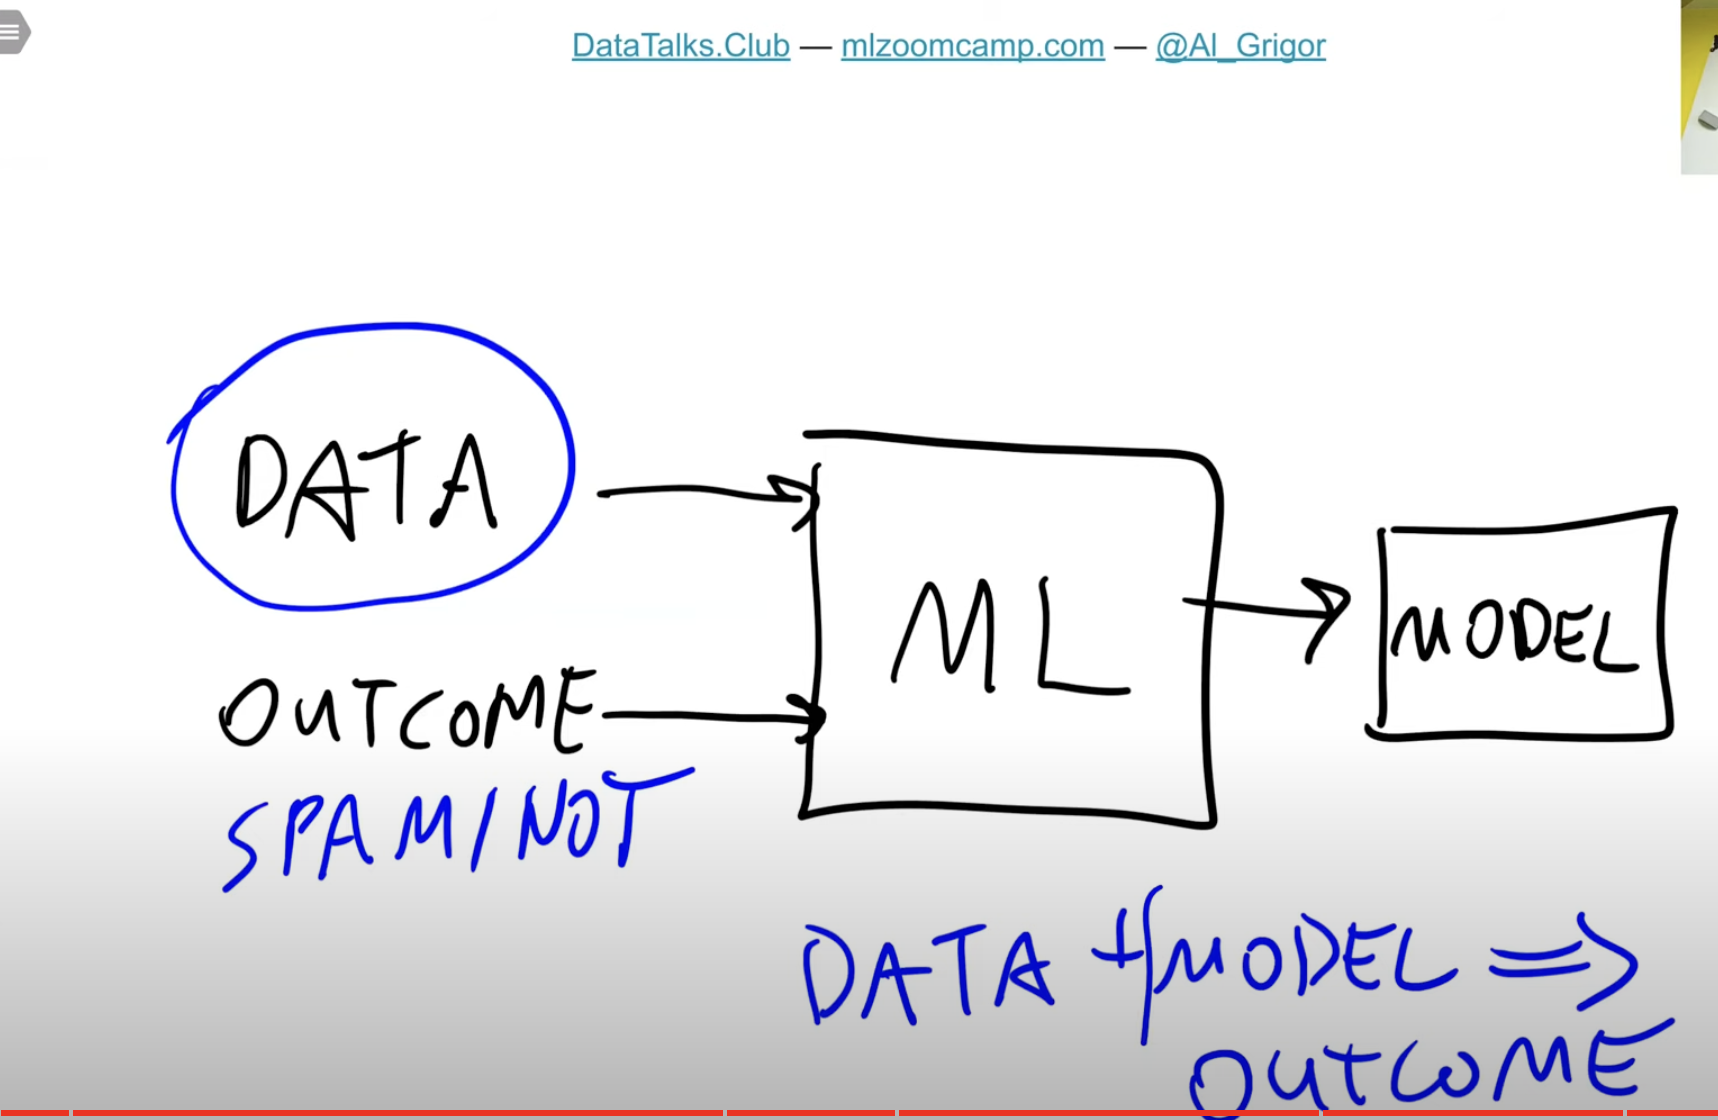 DataTalks.Club — mlzoomcamp.com — @Al_Grigor
DATA
ML
MODEL
OUTCOME
SPAM/NOT
DATA + MODEL ⇒
OUTCOME